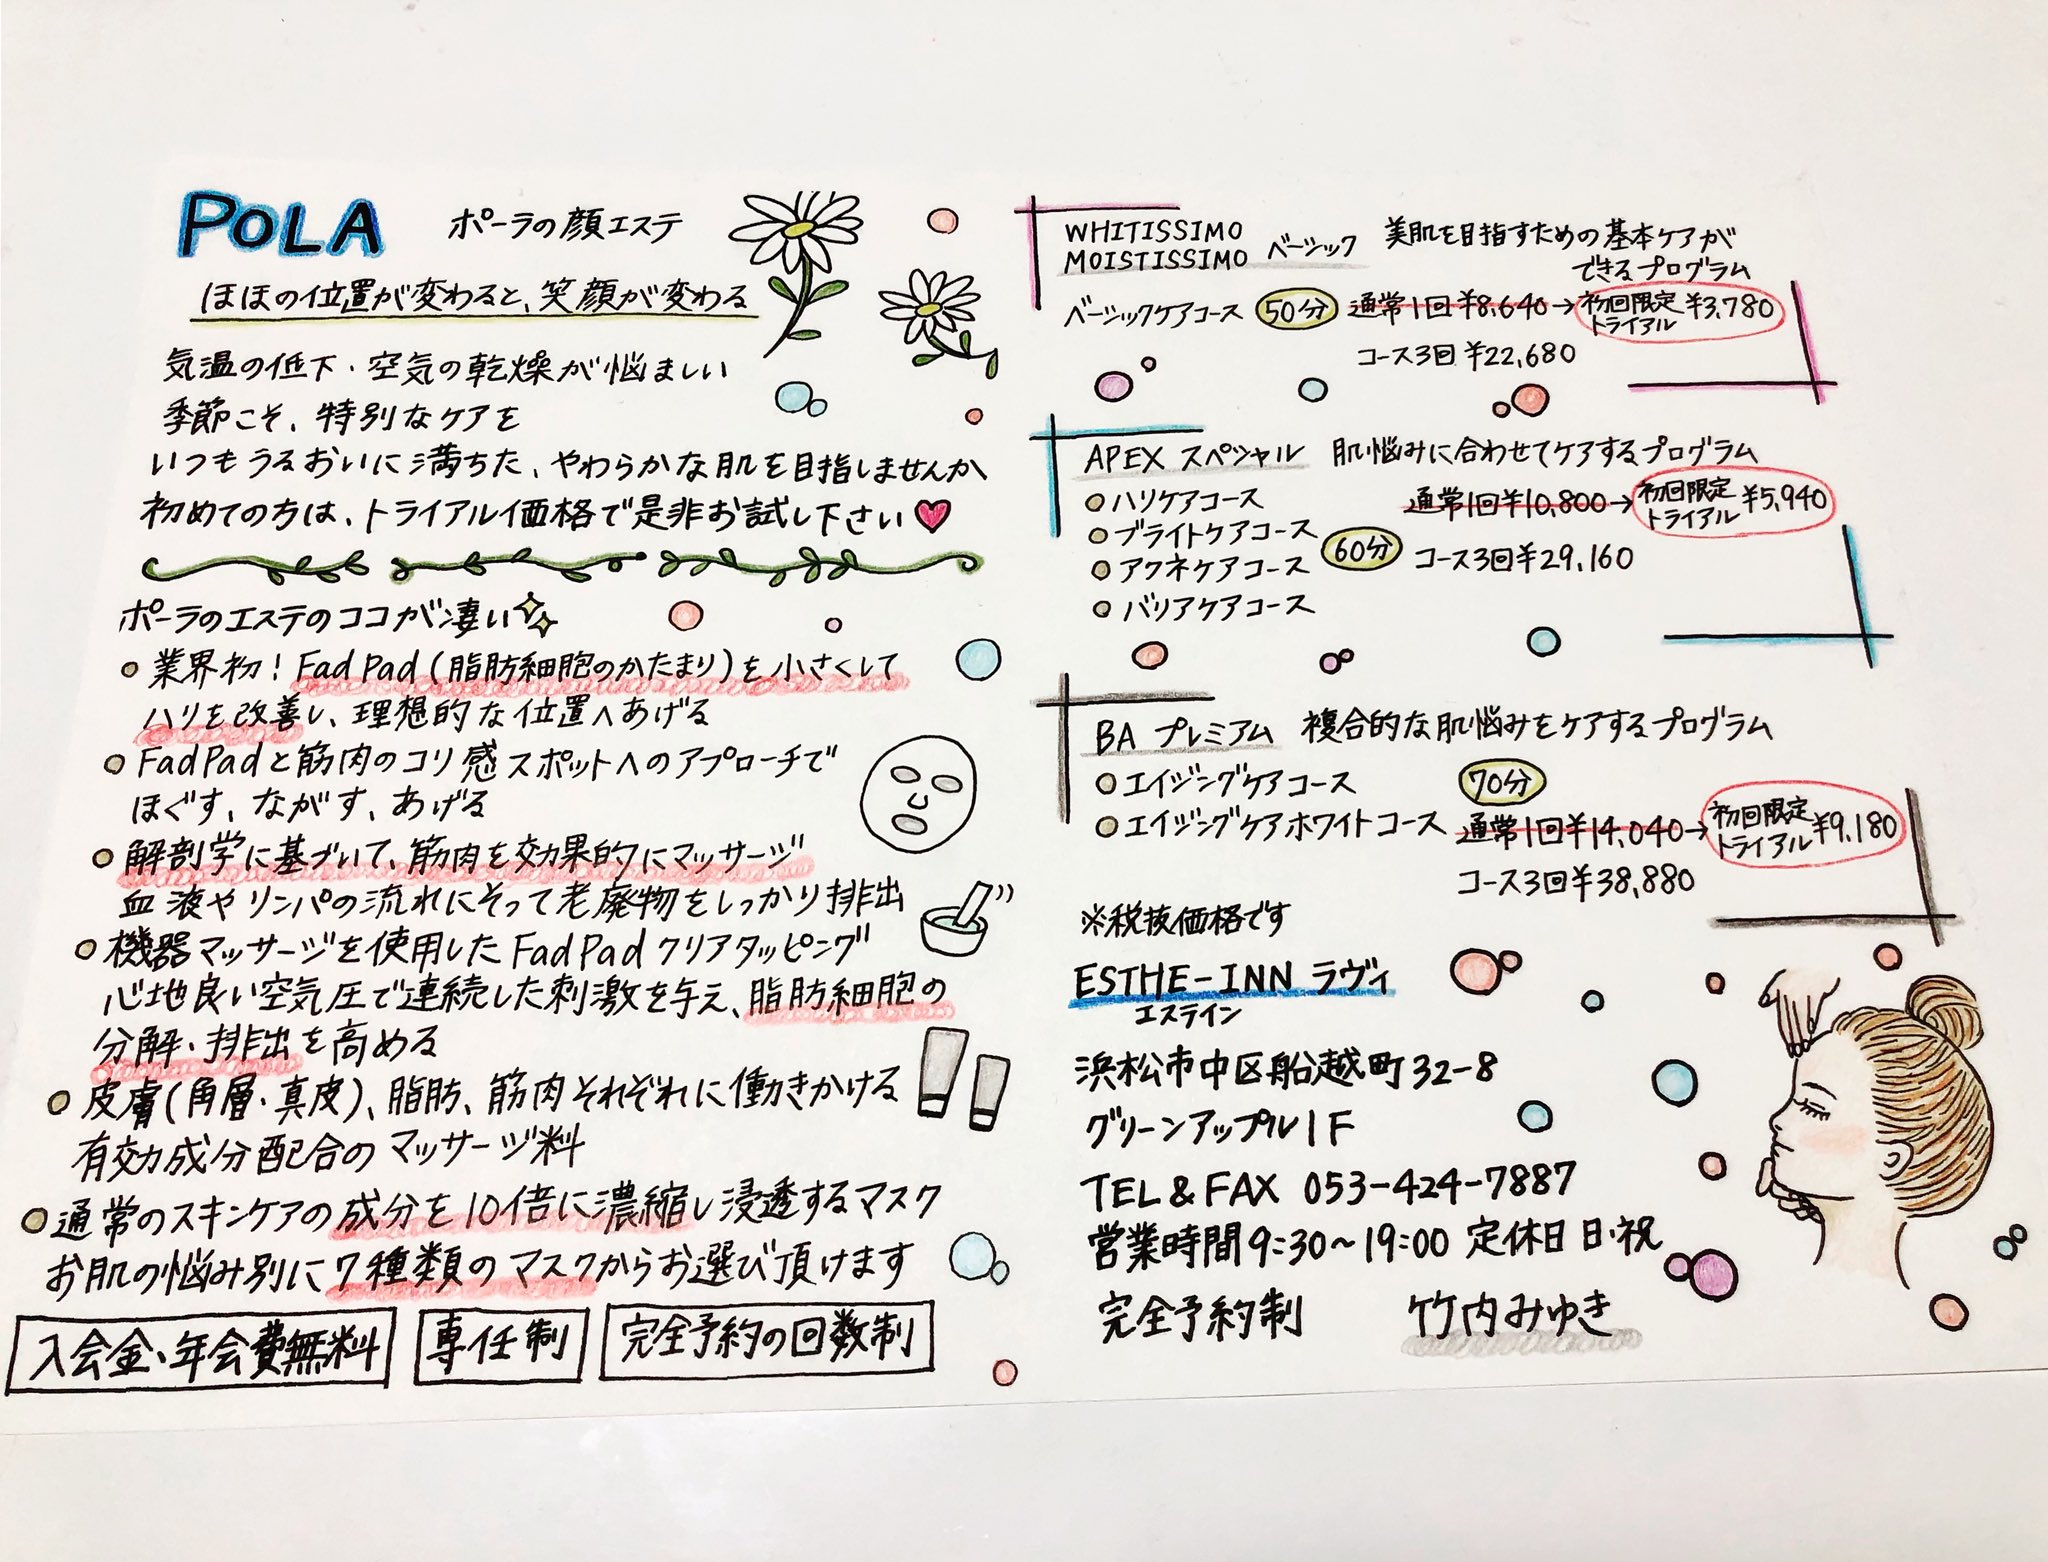 POLA ポーラの顔エステ
ほほの位置が変わると、笑顔が変わる
気温の低下・空気の乾燥が悩ましい
季節こそ、特別なケアを
いつもうるおいに満ちた、やわらかな肌を目指しませんか
初めての方は、トライアル価格で是非お試し下さい
ポーラのエステのココが凄い
業界初!FadPad(脂肪細胞のかたまり)を小さくして
ハリを改善し、理想的な位置へあげる
FadPadと筋肉のコリ感スポットへのアプローチで
ほぐす、ながす、あげる
解剖学に基づいて、筋肉を効果的にマッサージ
血液やリンパの流れにそって老廃物をしっかり排出
機器マッサージを使用したFadPadクリアタッピング
心地良い空気圧で連続した刺激を与え、脂肪細胞の
分解・排出を高める
皮膚(角層・真皮)、脂肪、筋肉それぞれに働きかける
有効成分配合のマッサージ料
通常のスキンケアの成分を10倍に濃縮し浸透するマスク
お肌の悩み別に7種類のマスクからお選び頂けます
入会金、年会費無料
専任制
完全予約の回数制
WHITISSIMO
MOISTISSIMO ベーシック
美肌を目指すための基本ケアが
できるプログラム
ベーシックケアコース 50分 通常1回¥8,640→初回限定トライアル¥3,780
コース3回¥22,680
APEX スペシャル 肌悩みに合わせてケアするプログラム
ハリケアコース
ブライトケアコース
アクネケアコース
バリアケアコース
60分
通常1回¥10,800→初回限定トライアル¥5,940
コース3回¥29,160
BA プレミアム 複合的な肌悩みをケアするプログラム
エイジングケアコース
エイジングケアホワイトコース
70分
通常1回¥14,040→初回限定トライアル¥9,180
コース3回¥38,880
※税抜価格です
ESTHE-INN ラヴィ
エステイン
浜松市中区船越町32-8
グリーンアップル1F
TEL&FAX 053-424-7887
営業時間9:30~19:00 定休日 日・祝
完全予約制 竹内みゆき